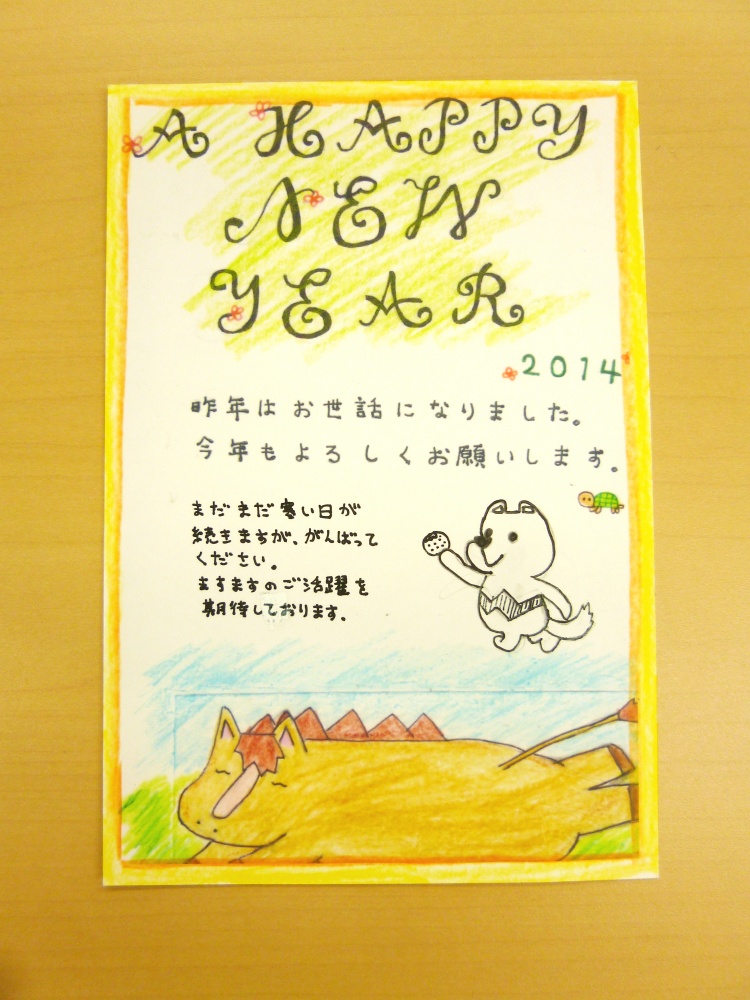 A HAPPY
NEW
YEAR
2014
昨年はお世話になりました。
今年もよろしくお願いします。
まだまだ寒い日が
続きますが、がんばって
ください。
ますますのご活躍を
期待しております。